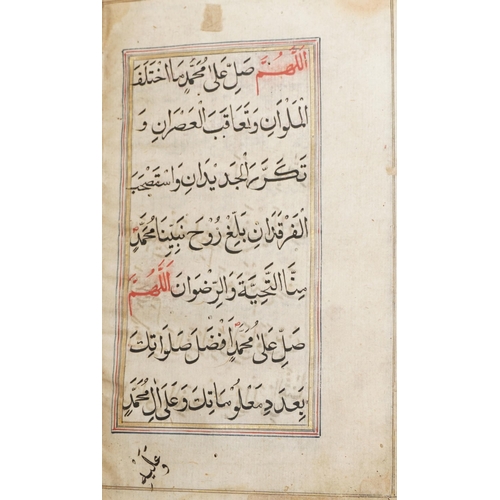 اَللّٰهُمَّ صَلِّ عَلٰى مُحَمَّدٍ مَا اخْتَلَفَ
الْمَلَوَانِ وَتَعَاقَبَ الْعَصْرَانِ وَ
تَكَرَّرَ الْجَدِيدَانِ وَاسْتَصْحَبَ
الْفَرْقَدَانِ بَلِّغْ رُوحَ نَبِيِّنَا مُحَمَّدٍ
مِنَّا التَّحِيَّةَ وَالرِّضْوَانَ اَللّٰهُمَّ
صَلِّ عَلٰى مُحَمَّدٍ اَفْضَلَ صَلَوَاتِكَ
بِعَدَدِ مَعْلُومَاتِكَ وَعَلٰى اٰلِ مُحَمَّدٍ
وعليه